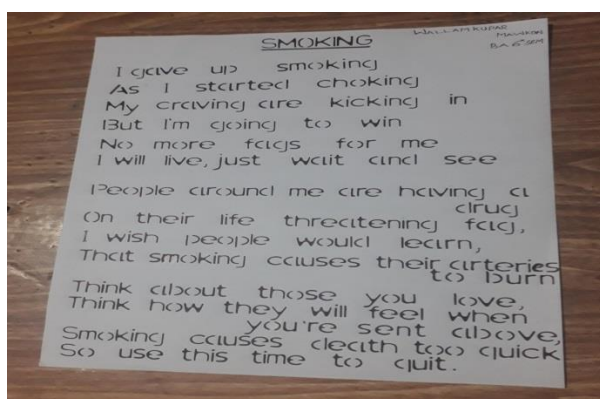 SMOKING
WALLAMKUPAR
MAWKON
BA 6th SEM
I gave up smoking
As I started choking
My craving are kicking in
But I'm going to win
No more fags for me
I will live, just wait and see
People around me are having a
drug
On their life threatening fag,
I wish people would learn,
That smoking causes their arteries
to burn
Think about those you love,
Think how they will feel when
you're sent above,
Smoking causes death too quick
So use this time to quit.